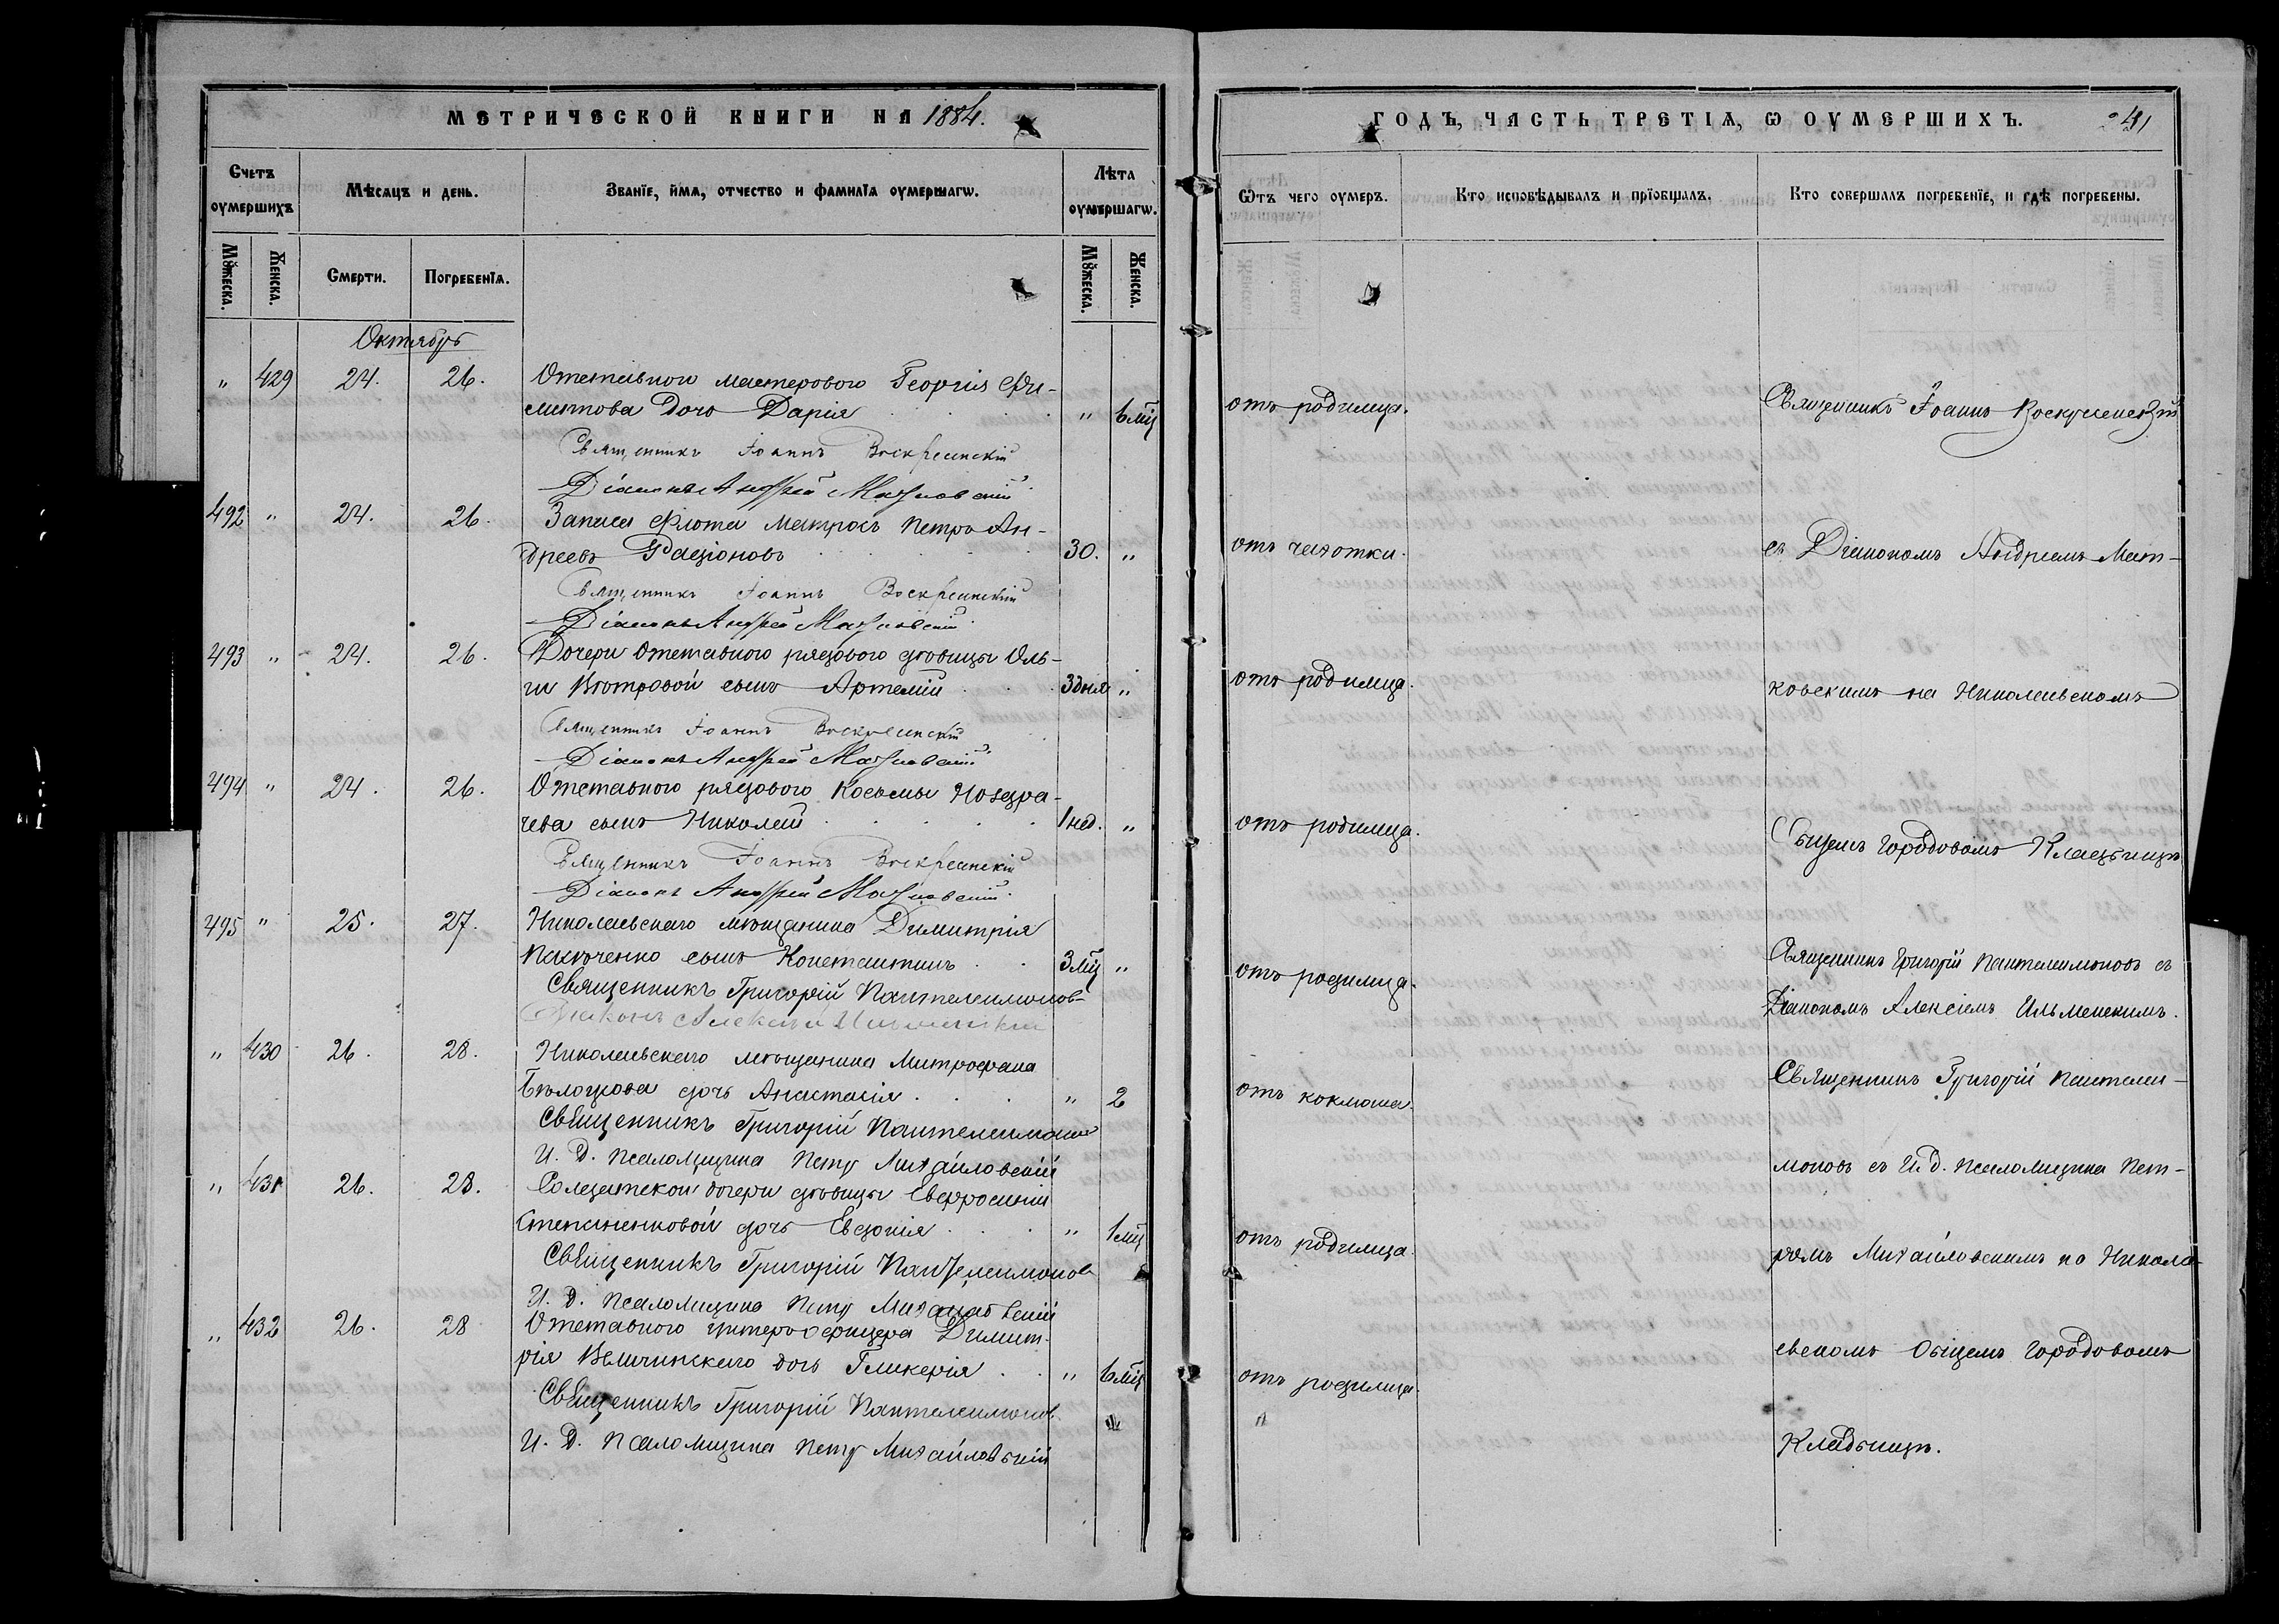 МЕТРИЧЕСКОЙ КНИГИ НА 1884.
Счетъ оумершихъ
Мѣсяцъ и день.
Званїе, имя, отчество и фамилїа оумершагѡ.
Лѣта оумершагѡ.
Мꙋжеска.
Женска.
Смерти.
Погребенїѧ.
Мꙋжеска.
Женска.
Октябрь
" 429 24. 26. Отставного мастерового Георгія
дочь Дарія " 6 мц
Священникъ Іоаннъ Воскресенскій
Діаконъ Андрей Матковскій
492 " 24. 26. Запаса флота матросъ Петръ Ан-
дреевъ Радіоновъ 30. "
Священникъ Іоаннъ Воскресенскій
Діаконъ Андрей Матковскій
493 " 24. 26. Дочери отставного рядового дѣвицы Оль-
ги сынъ Артемій 3 дня "
Священникъ Іоаннъ Воскресенскій
Діаконъ Андрей Матковскій
494 " 24. 26. Отставного рядового Косьмы Ноздра-
чева сынъ Николай 1 нед. "
Священникъ Іоаннъ Воскресенскій
Діаконъ Андрей Матковскій
495 " 25. 27. Николаевскаго мѣщанина Димитрія
сынъ Константинъ 3 мц "
Священникъ Григорій Пантелеимоновъ
Діаконъ Алексій Ильменскій
" 430 26. 28. Николаевскаго мѣщанина Митрофана
дочь Анастасія " 2
Священникъ Григорій Пантелеимоновъ
И. Д. Псаломщика Петръ Михайловскій
" 431 26. 28. Солдатской дочери дѣвицы Евфросиніи
Степаненковой дочь Евдокія " 1 мц
Священникъ Григорій Пантелеимоновъ
И. Д. Псаломщика Петръ Михайловскій
" 432 26. 28 Отставного унтеръ офицера Димит-
рія Величинскаго дочь Гликерія " 6 мц
Священникъ Григорій Пантелеимоновъ
И. Д. Псаломщика Петръ Михайловскій
ГОДЪ, ЧАСТЬ ТРЕТІЯ, Ѡ ОУМЕРШИХЪ. 241
Ѿтъ чего оумеръ.
Кто исповѣдывалъ и прїобщалъ.
Кто совершалъ погребенїе, и гдѣ погребены.
отъ родимца. Священникъ Іоаннъ Воскресенскій
отъ чахотки. съ Діакономъ Андреемъ Мат-
отъ родимца. ковскимъ на Николаевскомъ
отъ родимца. Общемъ Городовомъ Кладбищѣ
отъ родимца. Священникъ Григорій Пантелеимоновъ съ
Діакономъ Алексіемъ Ильменскимъ.
отъ коклюша. Священникъ Григорій Пантелеи-
моновъ съ И. д. Псаломщика Пет-
отъ родимца. ромъ Михайловскимъ на Никола-
евскомъ Общемъ Городовомъ
отъ родимца.
Кладбищѣ.